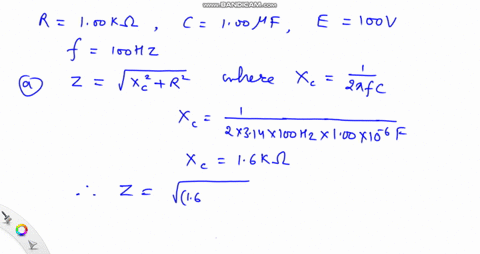 WWW.BANDICAM.COM
R = 1.00 KΩ , C = 1.00 μF , E = 100V
f = 100HZ
(a) Z = √(Xc² + R²) where Xc = 1/2πfC
Xc = 1/2×3.14×100HZ×1.00×10⁻⁶ F
Xc = 1.6KΩ
∴ Z = √(1.6